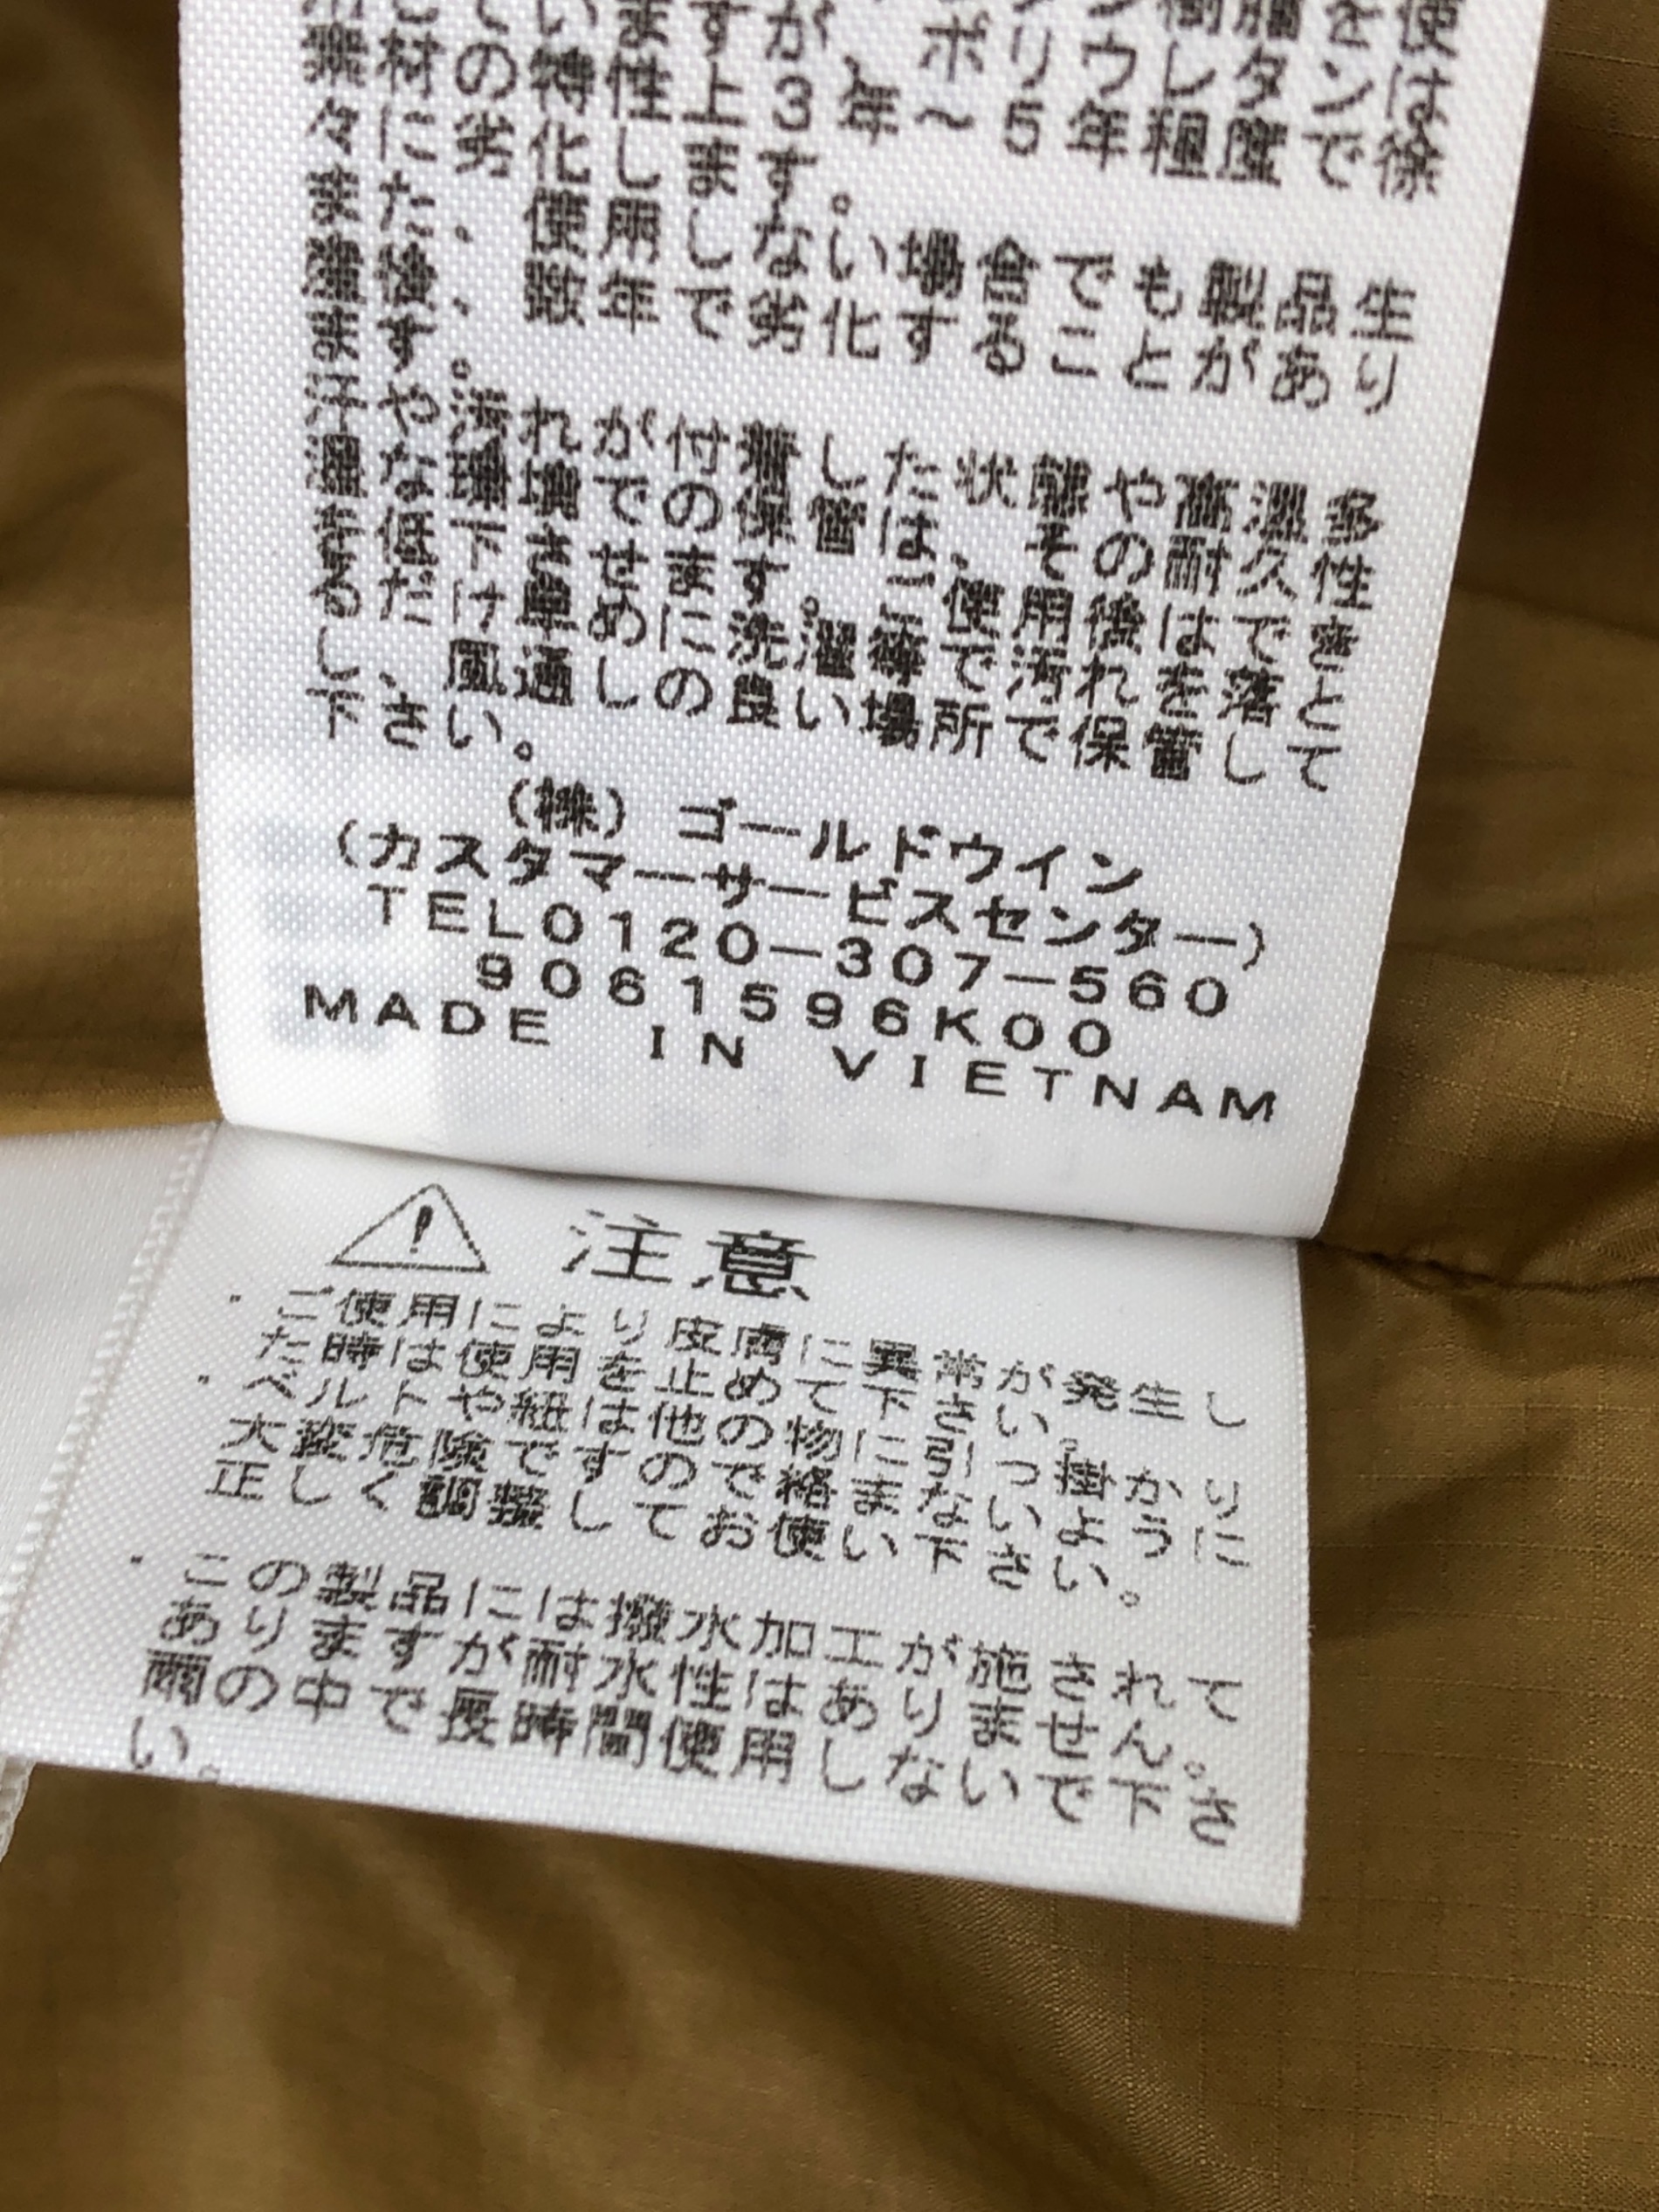 樹脂を使
用していますが、ポリウレタンは
素材の特性上3年～5年程度で徐
々に劣化します。
また、使用しない場合でも製品生
産後、数年で劣化することがあり
ます。
汗や汚れが付着した状態や高温多
湿な環境での保管は、その耐久性
を低下させます。ご使用後はでき
るだけ早めに洗濯等で汚れを落と
し、風通しの良い場所で保管して
下さい。
(株)ゴールドウイン
(カスタマーサービスセンター)
TEL0120-307-560
9061596K00
MADE IN VIETNAM
注意
・ご使用により皮膚に異常が発生し
た時は使用を止めて下さい。
・ベルトや紐は他の物に引っ掛かり
大変危険ですので絡まないように
正しく調整してお使い下さい。
・この製品には撥水加工が施されて
ありますが耐水性はありません。
雨の中で長時間使用しないで下さ
い。